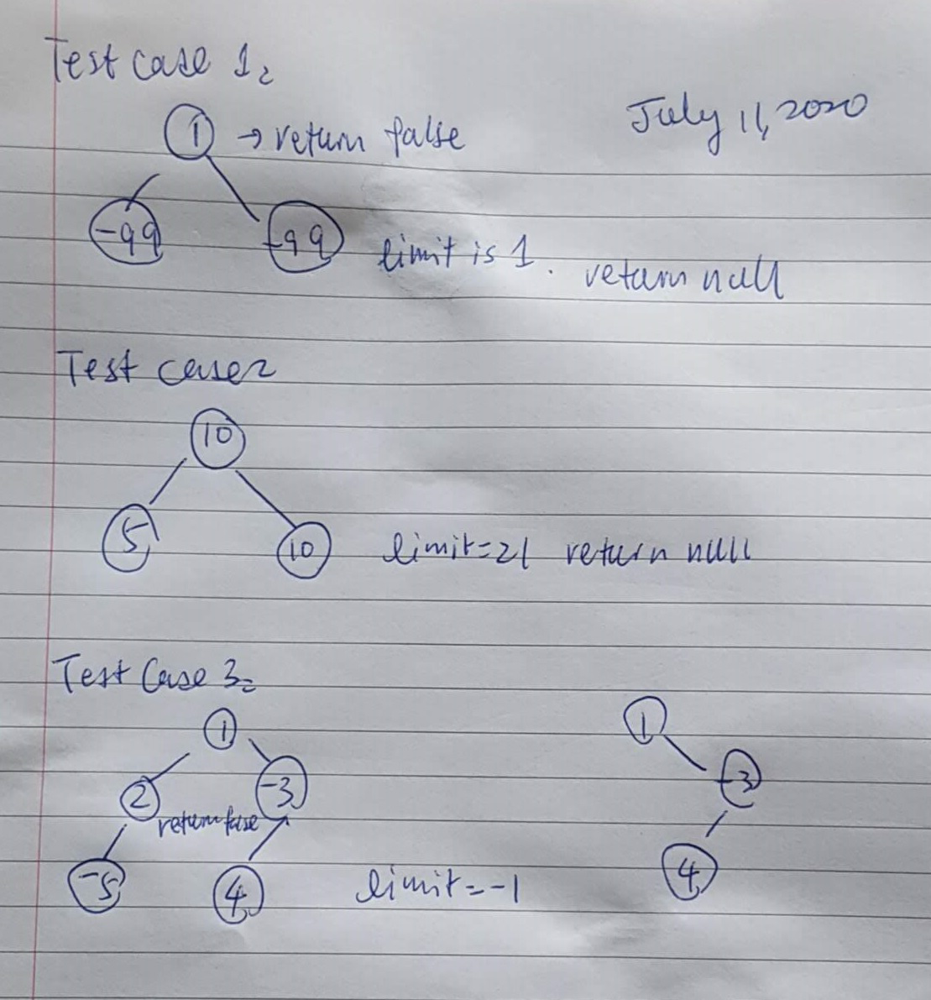 Test case 1:
July 11, 2020
1 → return false
-99 -99 limit is 1. return null
Test case 2
10
5 10 limit=21 return null
Test Case 3:
1 1
2 -3 -3
return fase
-5 4 limit=-1 4